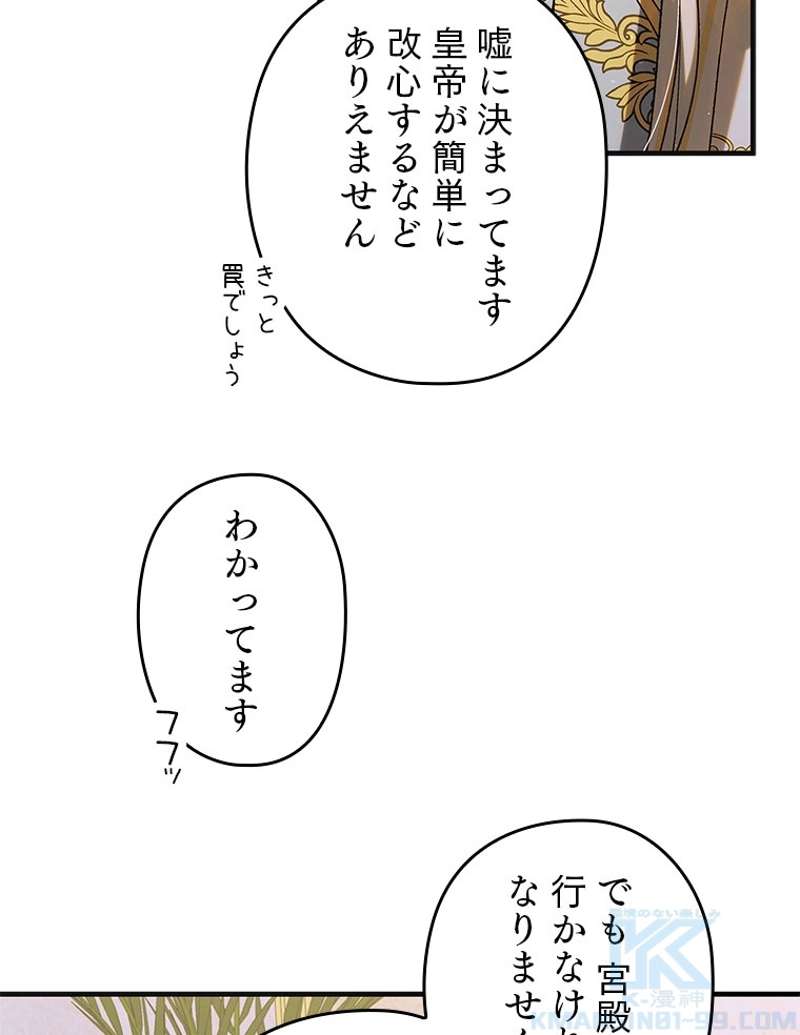 嘘に決まってます
皇帝が簡単に
改心するなど
ありえません
きっと
罠でしょう
わかってます
フフッ
でも宮殿
行かなけれ
なりません
K-漫神
KMANJIN01-99.COM